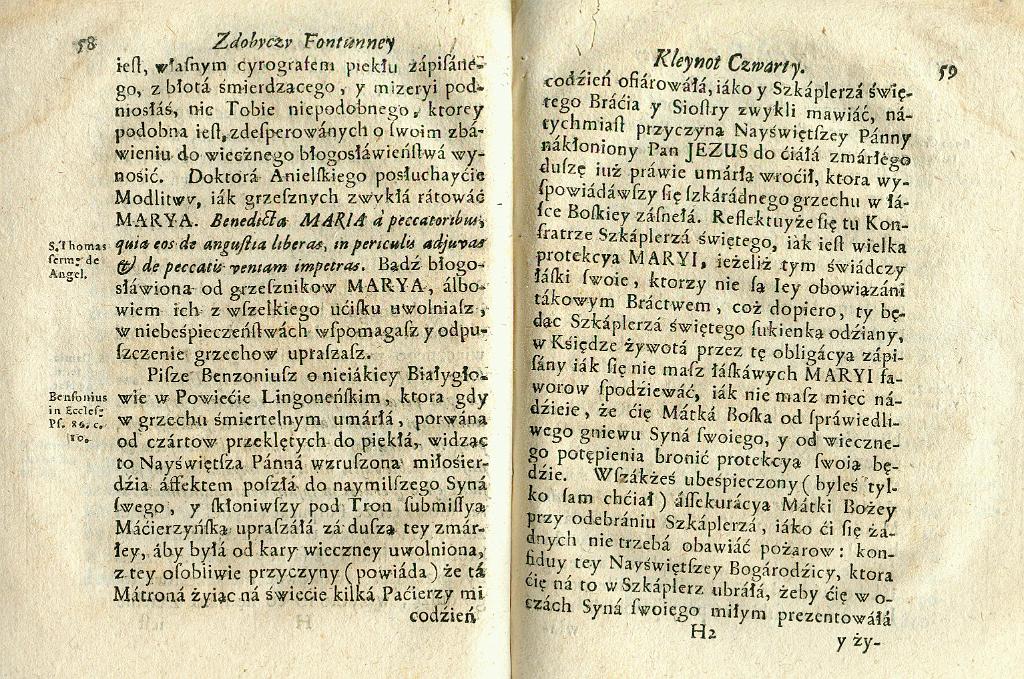 58
Zdobyczy Fontanney
ieſt, właſnym cyrografem piekłu zápiſáne-
go, z błotá śmierdzacego, y mizeryi pod-
niosłáś, nic Tobie niepodobnego, ktorey
podobna ieſt, zdeſperowánych o ſwoim zbá-
wieniu do wiecznego błogosłáwieńſtwá wy-
nosić. Doktorá Anielſkiego posłuchayćie
Modlitwy, iák grzeſznych zwykłá rátowáć
MARYA. Benedicta MARIA á peccatoribus,
S. Thomas
ſerm: de
Angel.
quia eos de anguſtia liberas, in periculis adjuvas
& de peccatis veniam impetras. Bądź błogo-
słáwiona od grzeſznikow MARYA, álbo-
wiem ich z wſzelkiego ućiſku uwolniaſz,
w niebeśpieczeńſtwách wſpomagaſz y odpu-
ſzczenie grzechow upraſzaſz.
Piſze Benzoniuſz o nieiákiey Białygło-
Benſonius
in Eccleſ:
Pſ. 86. c.
10.
wie w Powiećie Lingoneńſkim, ktora gdy
w grzechu śmiertelnym umárłá, porwána
od czártow przeklętych do piekłá, widząc
to Nayświętſza Pánná wzruſzona miłośier-
dźia áffektem poſzłá do naymilſzego Syná
ſwego, y ſkłoniwſzy pod Tron ſubmiſſya
Máćierzyńſką upraſzáłá zá duſzą tey zmár-
łey, áby byłá od kary wieczney uwolniona,
z tey oſobliwie przyczyny (powiáda) że tá
Mátroná żyiąc ná świećie kilká Paćierzy mi
codźień
Kleynot Czwarty.
59
codźień ofiárowáłá, iáko y Szkáplerzá świę-
tego Bráćia y Sioſtry zwykli mawiáć, ná-
tychmiaſt przyczyna Nayświętſzey Pánny
nákłoniony Pan JEZUS do ćiáłá zmárłego
duſzę iuż práwie umárłą wroćił, ktora wy-
ſpowiádáwſzy ſię ſzkárádnego grzechu w łá-
ſce Boſkiey záſnełá. Reflektuyże ſię tu Kon-
fratrze Szkáplerzá świętego, iák ieſt wielka
protekcya MARYI, ieżeliż tym świádczy
łáſki ſwoie, ktorzy nie ſą Iey obowiązáni
tákowym Bráctwem, coż dopiero, ty bę-
dąc Szkáplerzá świętego ſukienką odźiany,
w Kśiędze żywotá przez tę obligácya zápi-
ſány iák ſię nie maſz łáſkáwych MARYI fa-
worow ſpodziewáć, iák nie maſz mieć ná-
dźieie, że ćię Mátká Boſka od ſpráwiedli-
wego gniewu Syná ſwoiego, y od wieczne-
go potępienia bronić protekcya ſwoia bę-
dźie. Wſzákżeś ubeśpieczony (byleś tyl-
ko ſam chćiał) áſſekurácya Mátki Bożey
przy odebrániu Szkáplerzá, iáko ći ſię żá-
dnych nie trzebá obawiáć pożarow: kon-
fiduy tey Nayświętſzey Bogárodźicy, ktora
ćię ná to w Szkáplerz ubráłá, żeby ćię w o-
czách Syná ſwoiego miłym prezentowáłá
H2
y ży-